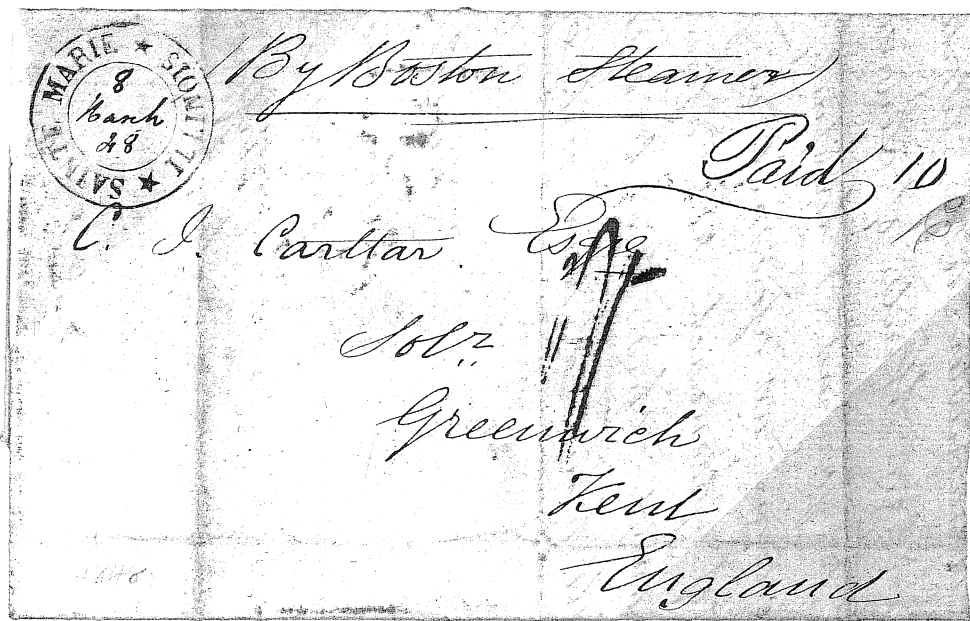 SAINTE MARIE ★ ILLINOIS ★
8
March
48
By Boston Steamer
Paid 10
C. I. Carttar Esqre
Solr
Greenwich
Kent
England